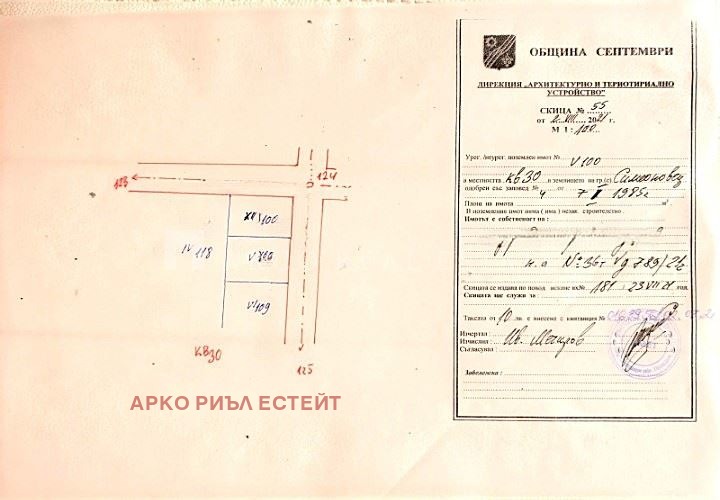 123
124
XII/100
IV 118
V
VI 109
КВ30
125
АРКО РИЪЛ ЕСТЕЙТ
ОБЩИНА СЕПТЕМВРИ
ДИРЕКЦИЯ „АРХИТЕКТУРНО И ТЕРИОТИРИАЛНО
УСТРОЙСТВО"
СКИЦА № 55
от 2. VIII 2021 г.
М 1 : 100
Урег. /неурег. поземлен имот № V 100
в местността кв 30 в землището на гр.(с) Симеоновец
одобрен със заповед № 4 от 7 II 1985г
Площ на имота
В поземления имот няма ( има ) незак. строителство .
Имотът е собственост на :
н.а № 36 т V д 789/21г
Скицата се издава по повод искане вх№ 181 23 VII 21 год.
Скицата ще служи за :
Таксата от 10 лв. е внесена с квитанция №
Изчертал :
Изчислил : Ив.
Съгласувал :
Забележка :